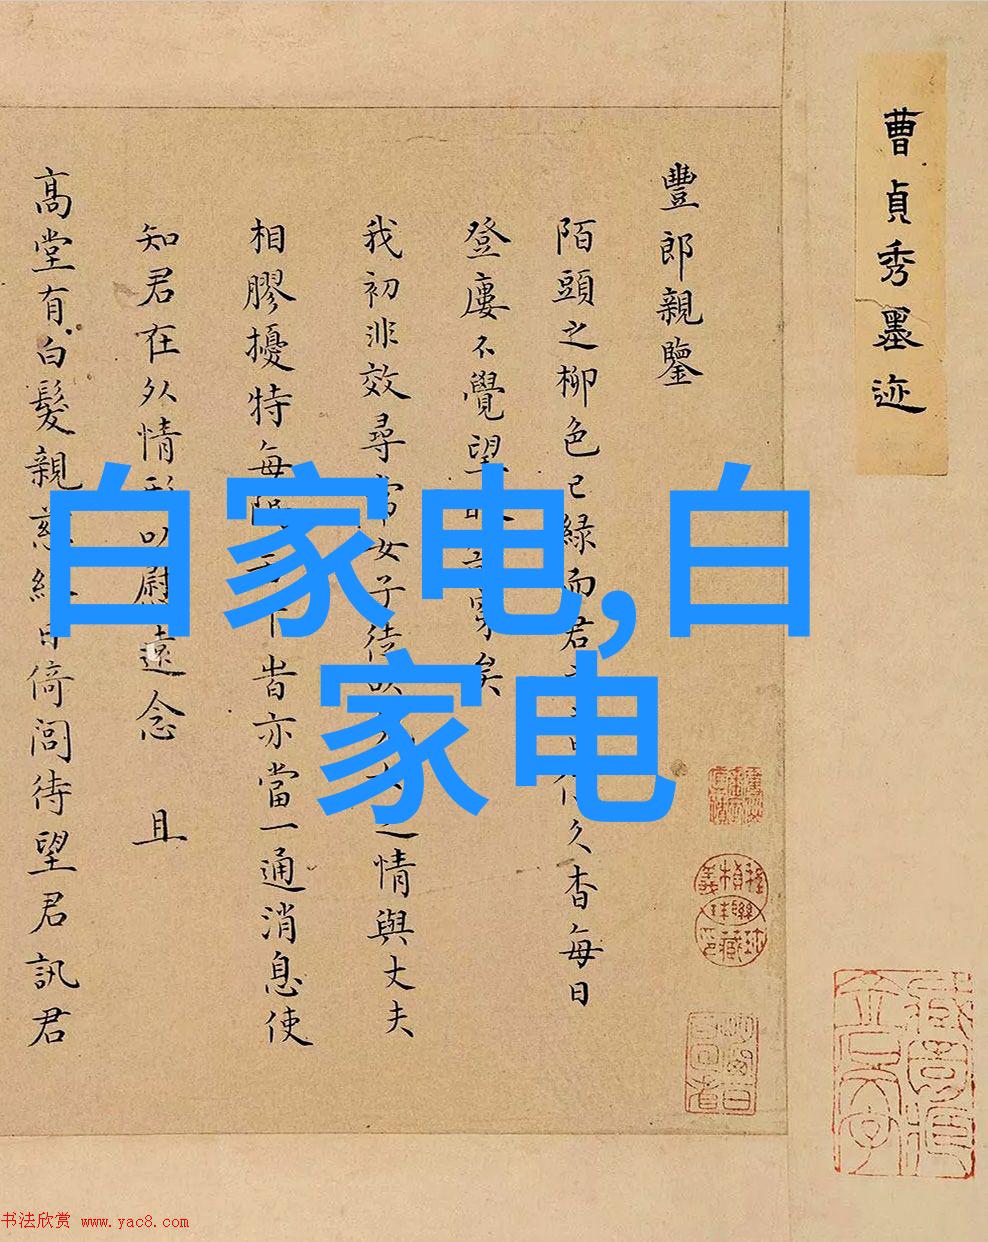 曹貞秀墨迹
豐郎親鑒
陌頭之柳色已綠而君久杳每日
登廔不覺望穿矣
我初非效尋常女子徒之情與丈夫
相膠擾特每者亦當一通消息使
知君在外情形以慰遠念 且
高堂有白髮親日倚閭待望君訊君
白家电,白
家电
书法欣赏 www.yac8.com